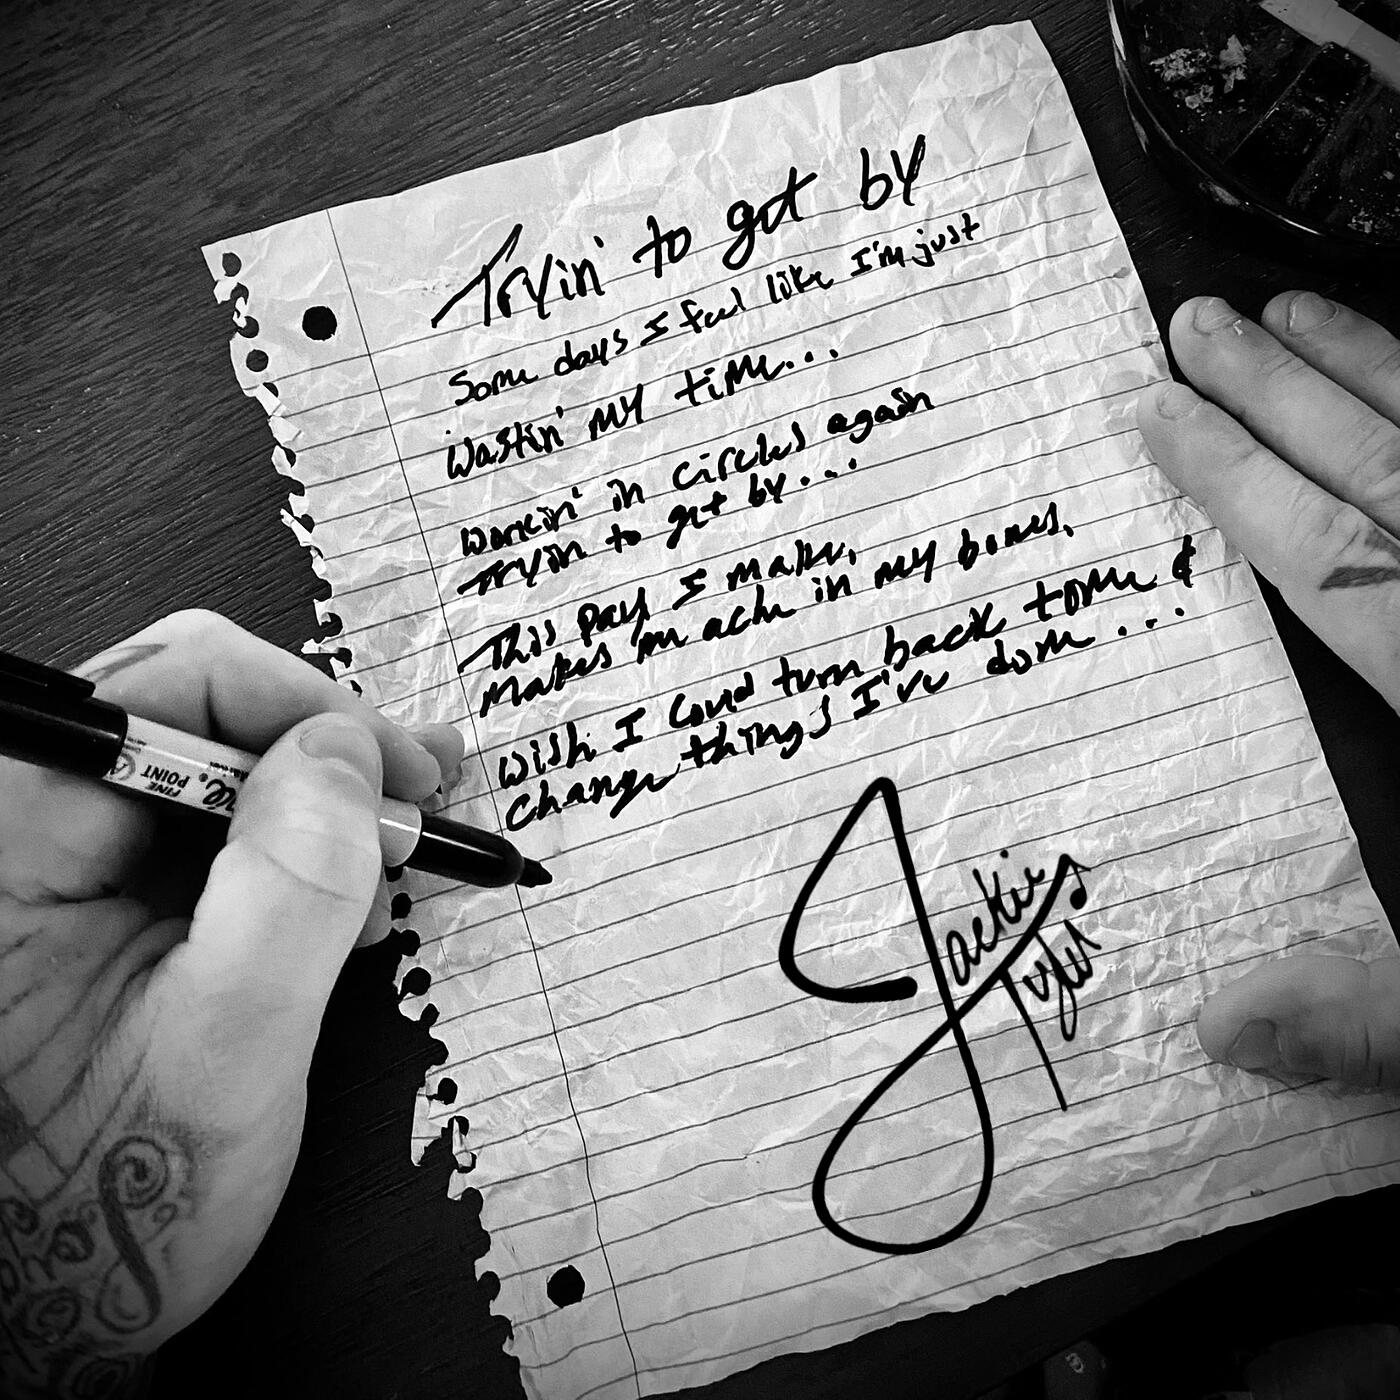 Tryin' to get by
Some days I feel like I'm just
Wastin' my time...
Workin' in circles again
Tryin to get by...
This pay I make,
Makes m ache in my bones,
Wish I could turn back tome &
Change things I've done...
Jackie
Tyler
FINE
POINT